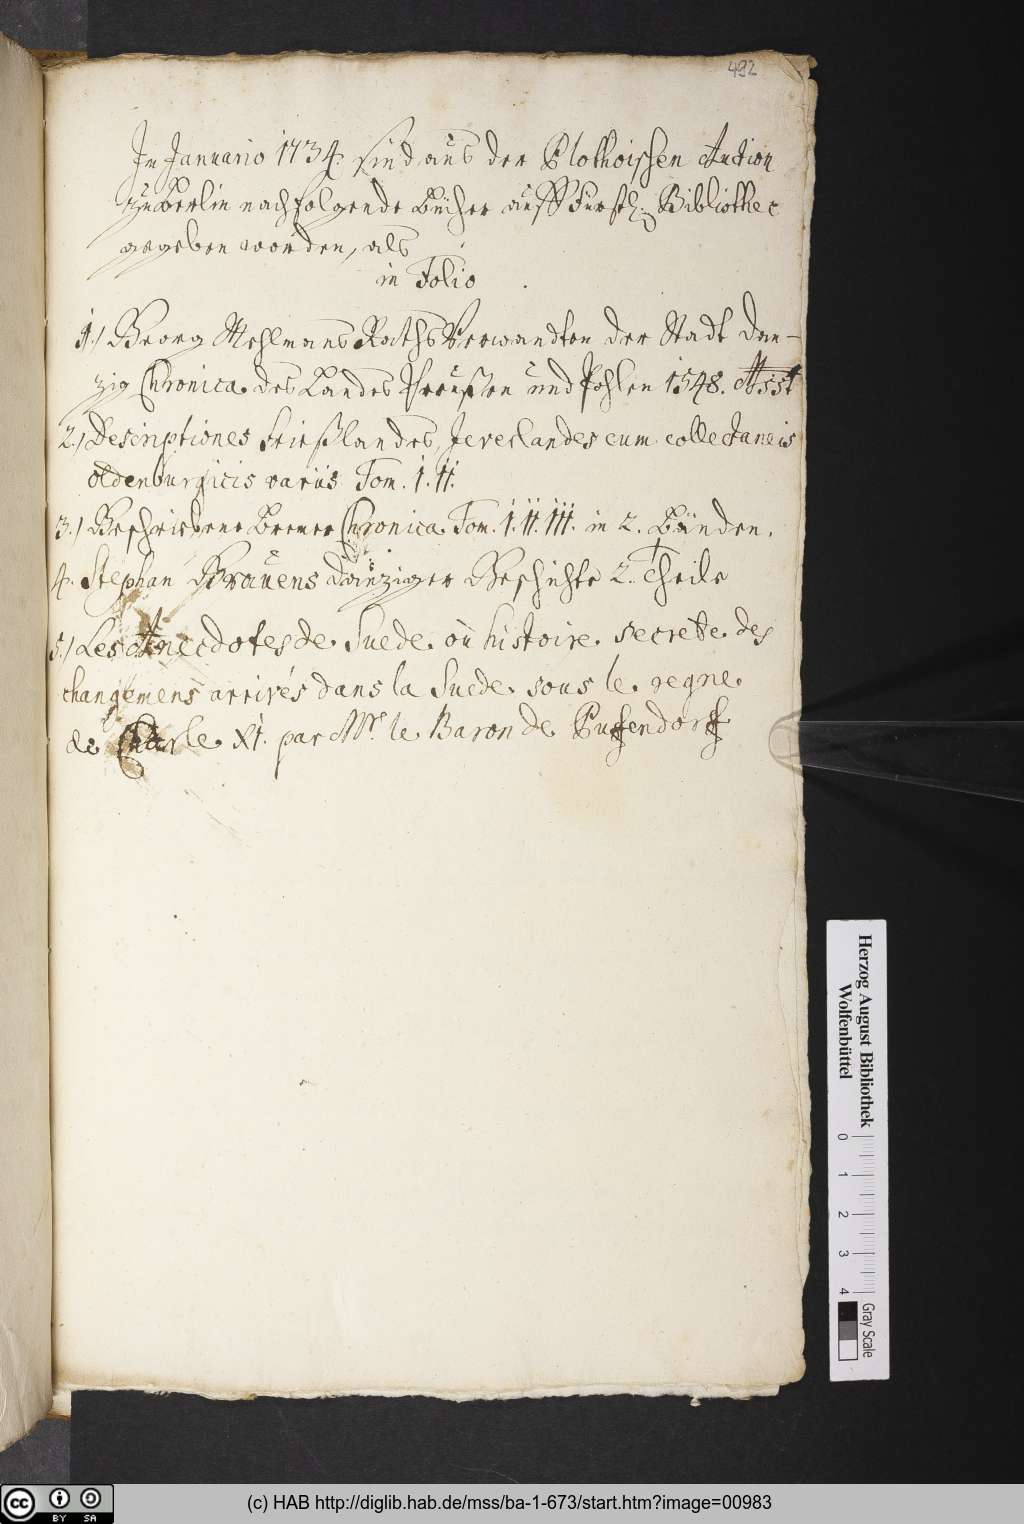 492
In Januario 1734. sind aus der Plothoischen Auction
zu Berlin nachfolgende Bücher auff Fürstl. Bibliothec
gegeben worden, als
in Folio
1.) Georg Mehlmans Raths Verwandten der Stadt Dan-
zig Chronica des Landes Preußen und Pohlen 1548. Msst
2.) Descriptiones Frießlandes, Jeverlandes cum collectaneis
oldenburgicis variis Tom. I. II.
3.) Geschriebene Bremer Chronica Tom. I. II. III. in 2. Bänden.
4. Stephan Grauens Dantziger Geschichte 2. Theile
5.) Les Anecdotes de Suede. où histoire. secrete. des
changemens arrivés dans la Suede. sous le. regne.
de Charle. XI. par Mr. le Baron de Puffendorff
Herzog August Bibliothek
Wolfenbüttel
0 1 2 3 4
Gray Scale
cc BY SA
(c) HAB http://diglib.hab.de/mss/ba-1-673/start.htm?image=00983